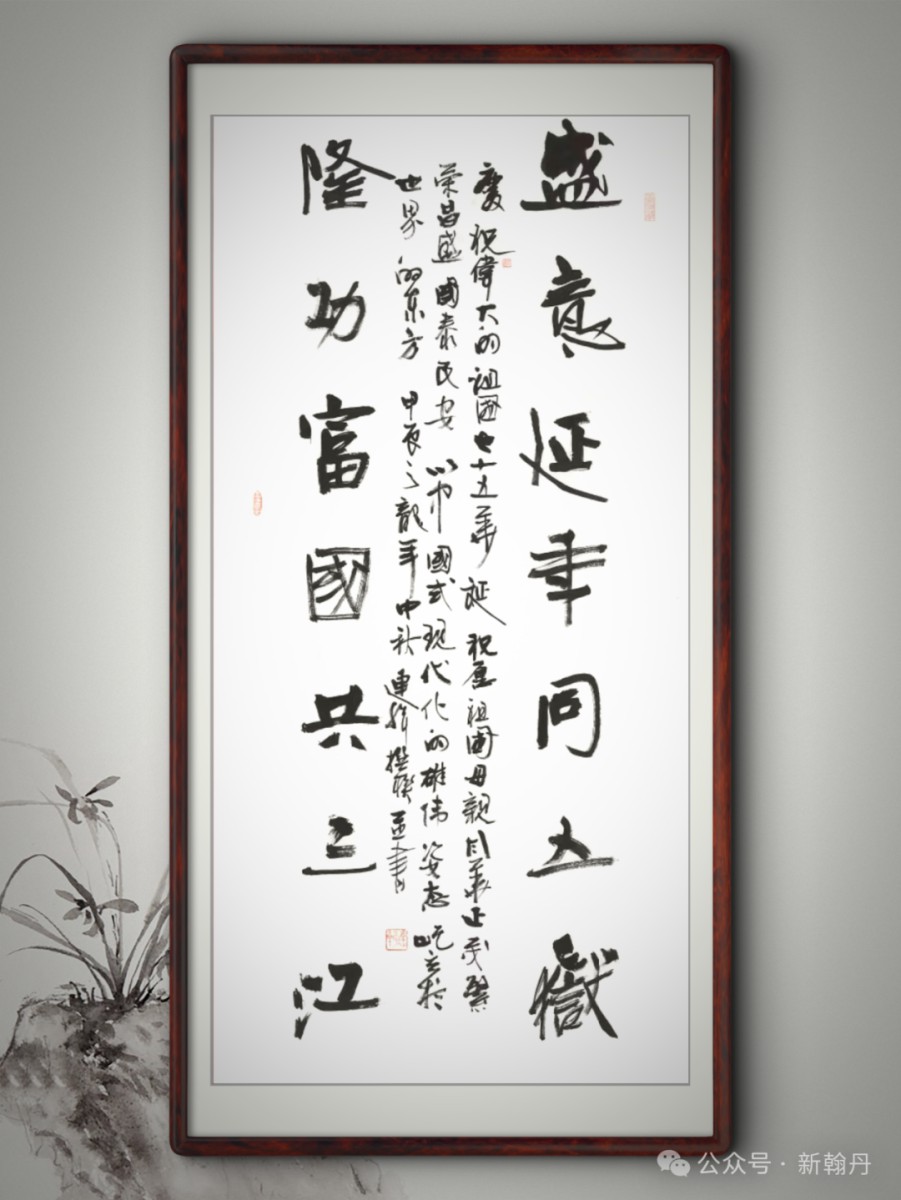 盛意延年同五嶽
慶祝偉大的祖国七十五華诞 祝愿祖国母親风華正茂繁
荣昌盛國泰民安 以中國式现代化的雄偉姿态屹立於
世界的东方 甲辰之龍年中秋 連辑撰聯並書
隆功富國共三江
公众号 · 新翰丹